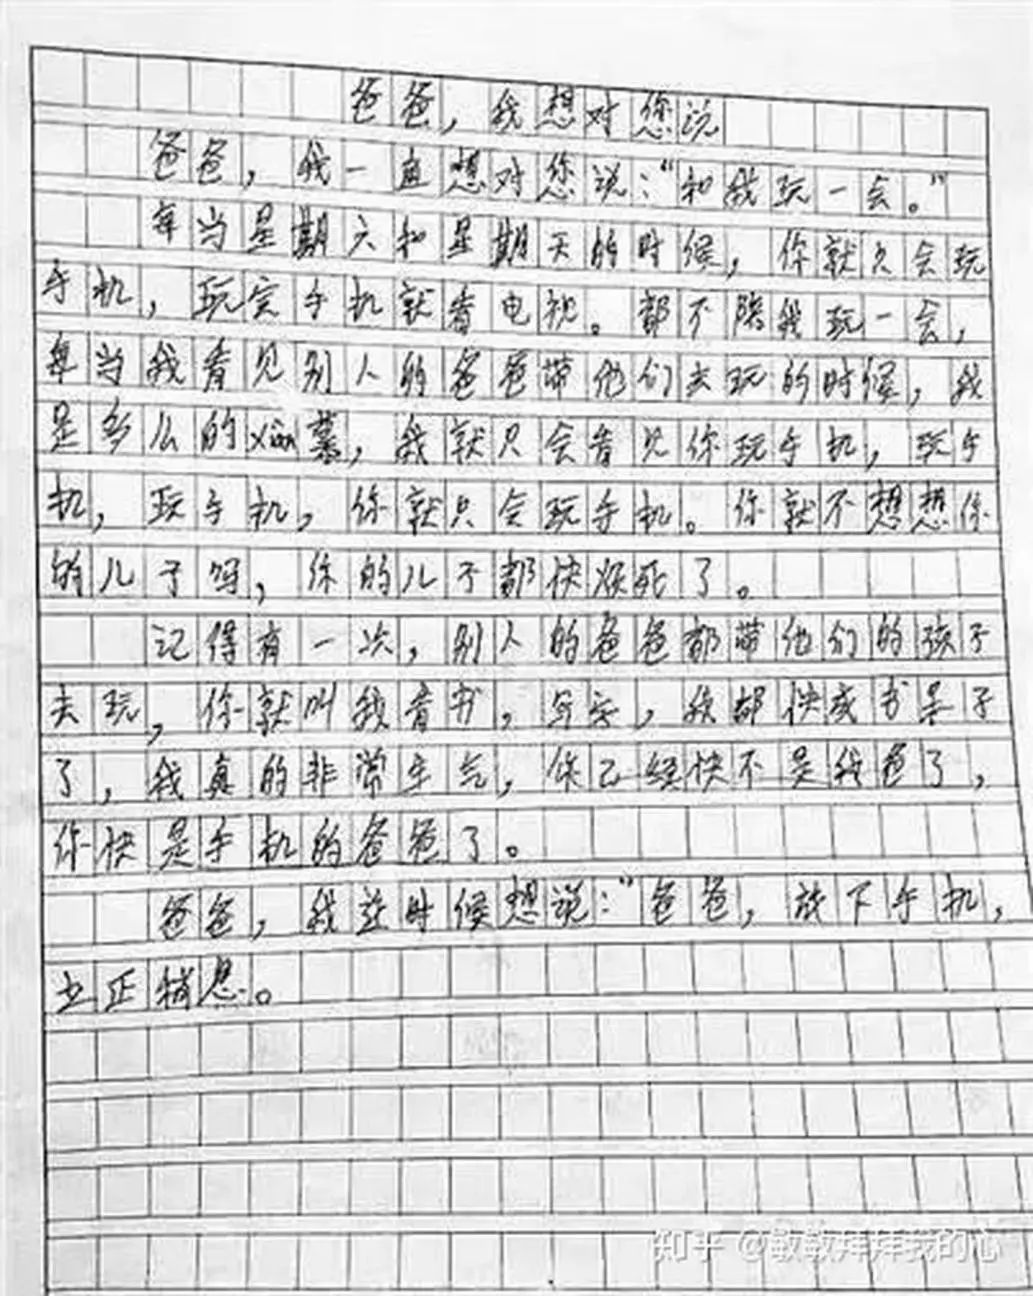 爸爸，我想对您说
爸爸，我一直想对您说：“和我玩一会。”
每当星期六和星期天的时候，你就只会玩
手机，玩完手机就看电视。都不陪我玩一会，
每当我看见别人的爸爸带他们去玩的时候，我
是多么的xiàn慕，我就只会看见你玩手机，玩手
机，玩手机，你就只会玩手机。你就不想想你
的儿子吗，你的儿子都快烦死了。
记得有一次，别人的爸爸都带他们的孩子
去玩，你就叫我看书，写字，我都快成书呆子
了，我真的非常生气，你已经快不是我爸了，
你快是手机的爸爸了。
爸爸，我这时候想说：“爸爸，放下手机，
立正稍息。
知乎 @敏敏拜拜我的心